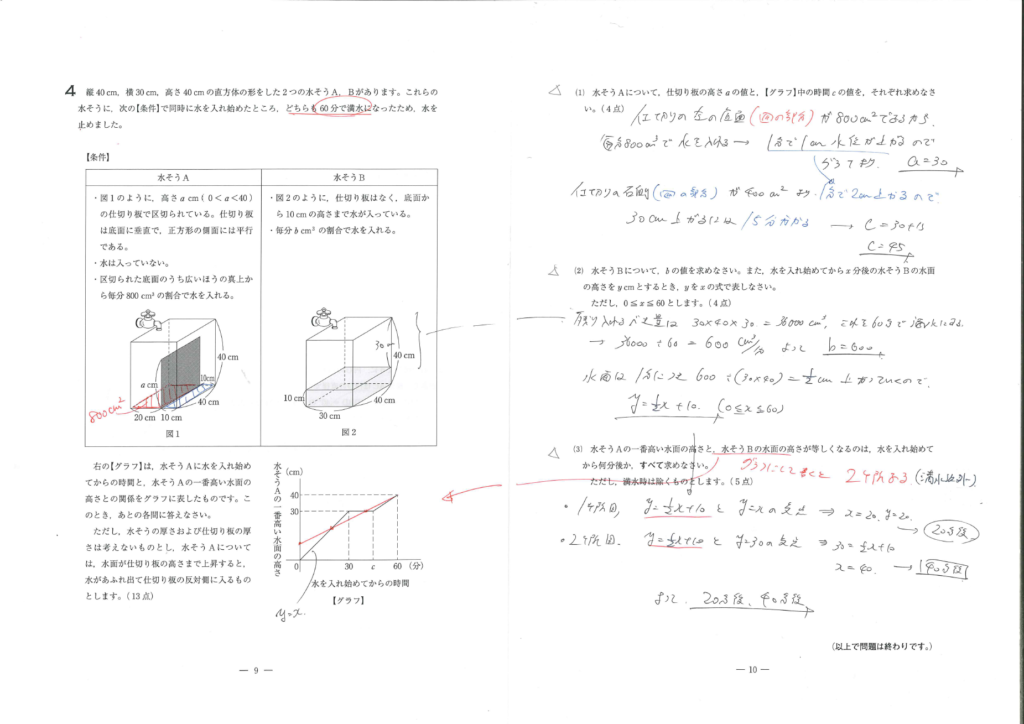 4 縦40 cm, 横30 cm, 高さ40 cmの直方体の形をした2つの水そうA, Bがあります。これらの
水そうに, 次の【条件】で同時に水を入れ始めたところ, どちらも60分で満水になったため, 水を
止めました。
【条件】
水そうA
・図1のように, 高さ a cm(0<a<40)
の仕切り板で区切られている。仕切り板
は底面に垂直で, 正方形の側面には平行
である。
・水は入っていない。
・区切られた底面のうち広いほうの真上か
ら毎分800 cm³の割合で水を入れる。
40 cm
a cm
10cm
40 cm
800cm²
20 cm 10 cm
図1
水そうB
・図2のように, 仕切り板はなく, 底面か
ら10 cmの高さまで水が入っている。
・毎分 b cm³の割合で水を入れる。
30
40 cm
10 cm
40 cm
30 cm
図2
右の【グラフ】は, 水そうAに水を入れ始め
てからの時間と, 水そうAの一番高い水面の
高さとの関係をグラフに表したものです。こ
のとき, あとの各問に答えなさい。
ただし, 水そうの厚さおよび仕切り板の厚
さは考えないものとし, 水そうAについて
は, 水面が仕切り板の高さまで上昇すると,
水があふれ出て仕切り板の反対側に入るもの
とします。(13点)
水そうAの一番高い水面の高さ
(cm)
40
30
0 30 c 60 (分)
水を入れ始めてからの時間
【グラフ】
y=x
― 9 ―
(1) 水そうAについて, 仕切り板の高さ a の値と, 【グラフ】中の時間 c の値を, それぞれ求めなさ
い。(4点)
仕切りの左の底面(図の部分)が800cm²であるから,
毎分800cm³で水を入れる→1分で1cm水位が上がるので
a=30
仕切りの右側(図の部分)が400cm²より, 1分で2cm上がるので
30cm上がるには15分かかる → c=30+15
c=45
(2) 水そうBについて, b の値を求めなさい。また, 水を入れ始めてから x 分後の水そうBの水面
の高さを y cmとするとき, y を x の式で表しなさい。
ただし, 0≦x≦60とします。(4点)
残り入れるべき量は 30×40×30=36000cm³, これを60分で満水になる
→ 36000÷60=600 cm³/分 よって b=600
水面は1分につき 600÷(30×40)=½cm 上がっていくので,
y=½x+10 (0≦x≦60)
(3) 水そうAの一番高い水面の高さと, 水そうBの水面の高さが等しくなるのは, 水を入れ始めて
から何分後か, すべて求めなさい。
ただし, 満水時は除くものとします。(5点)
グラフにして書くと 2ヶ所ある(満水以外)
・1ヶ所目, y=½x+10 と y=xの交点 ⇒ x=20, y=20
20分後
・2ヶ所目, y=½x+10 と y=30の交点 ⇒ 30=½x+10
x=40. → 40分後
よって, 20分後, 40分後
(以上で問題は終わりです。)
― 10 ―